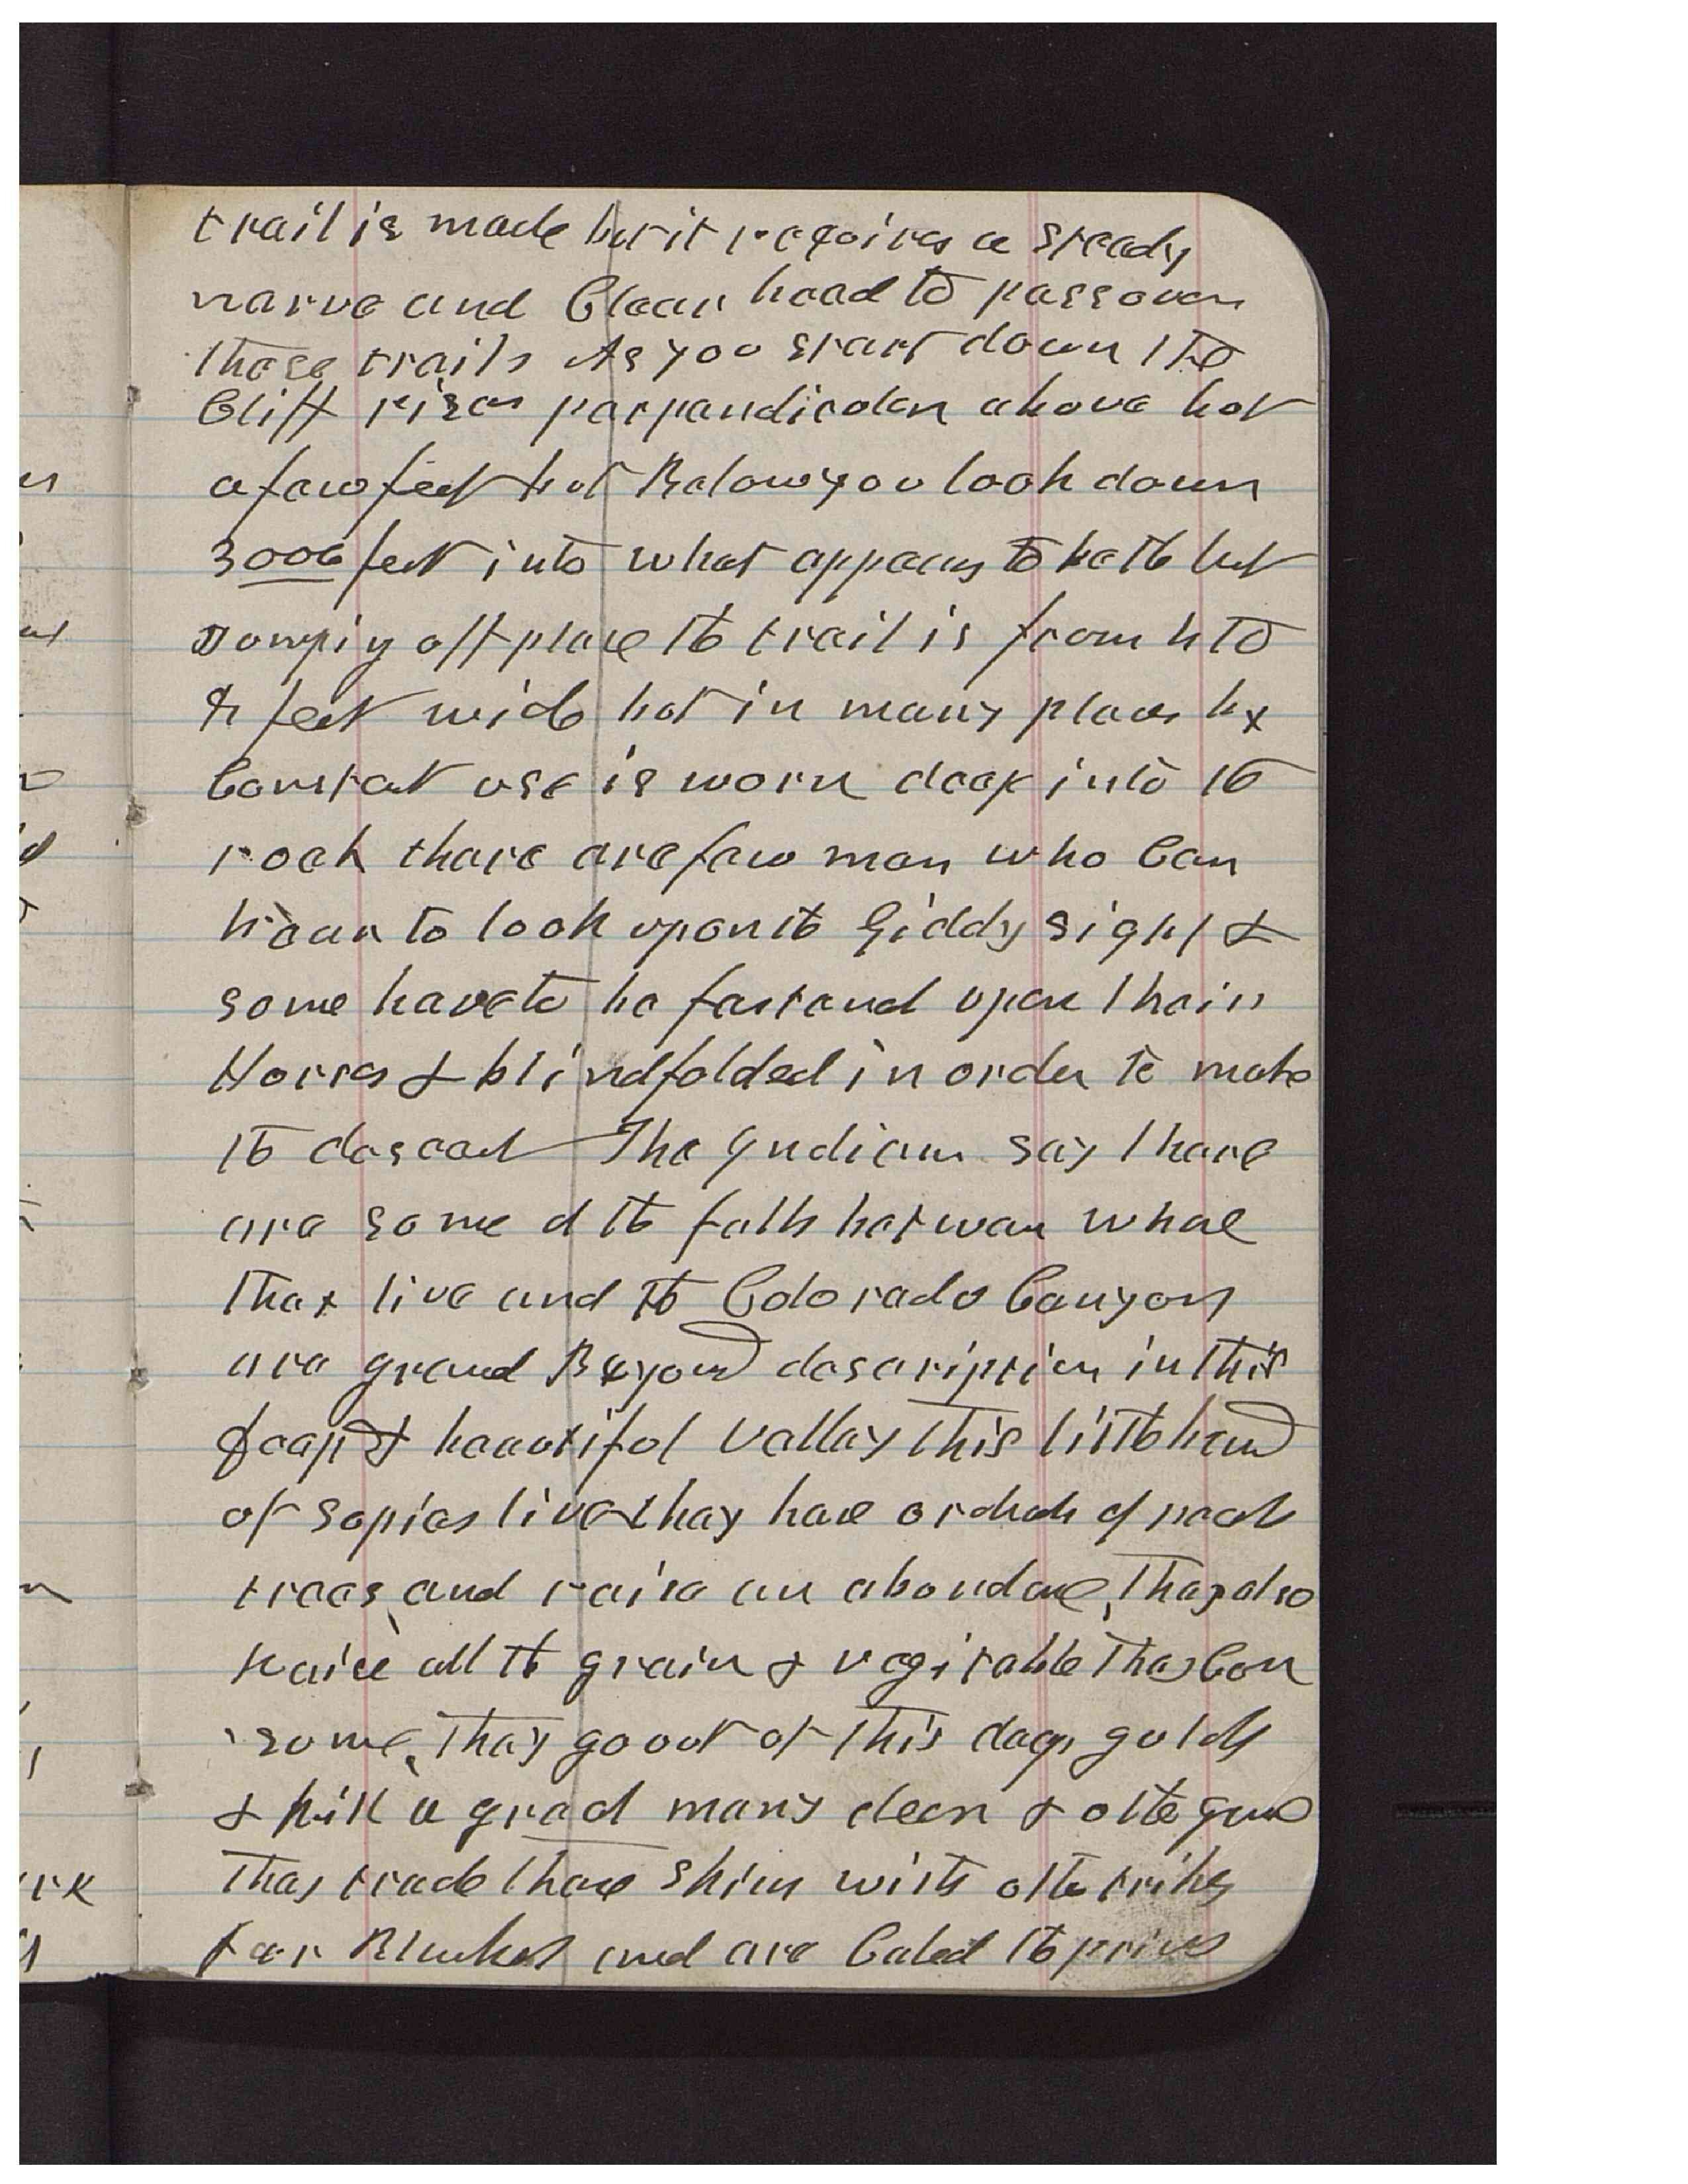 trail is made but it requires a steady
nerve and Clear head to pass over
these trails As you start down the
Cliff rises perpendicular above but
a few feet but Below you look down
3000 feet into what appears to be the
Jumping off place the trail is from 4 to
feet wide but in many places by
Constant use is worn deep into the
rock there are few men who Can
bear to look upon the Giddy sight &
some have to be fastened upon their
Horses & blindfolded in order to make
the descent The Indians say there
are some of the falls between where
they live and the Colorado Canyon
are grand Beyond description in this
deep & beautiful valley This little band
of Supies live they have orchards of peach
trees, and raise an abundance, They also
raise all the grain & vegitable They Con
sume, They go out of this deep gulch
& kill a great many deer & other game
They trade these skins with other tribes
for Blankets and are Called the